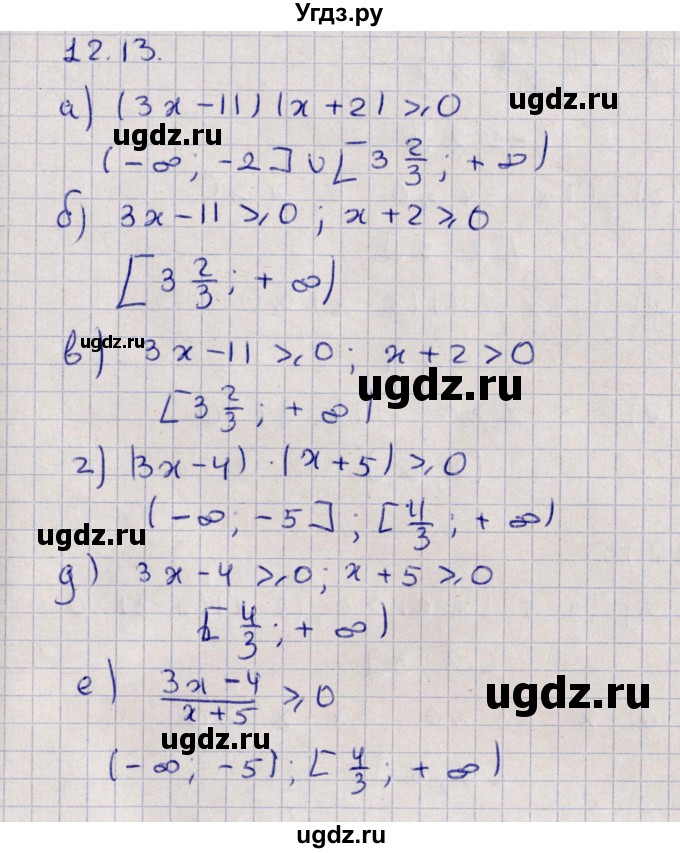 Угдз.ру
12.13.
а) (3x-11)(x+2)⩾0
ugdz.ru
ugdz.ru
(-∞; -2]∪[3 2/3; +∞)
б) 3x-11⩾0; x+2⩾0
[3 2/3; +∞)
ugdz.ru
в) 3x-11⩾0; x+2>0
ugdz.ru
[3 2/3; +∞)
г) (3x-4)·(x+5)⩾0
(-∞; -5]; [4/3; +∞)
ugdz.ru
д) 3x-4⩾0; x+5⩾0
[4/3; +∞)
е) (3x-4)/(x+5) ⩾0
ugdz.ru
ugdz.ru
(-∞; -5); [4/3; +∞)
ugdz.ru